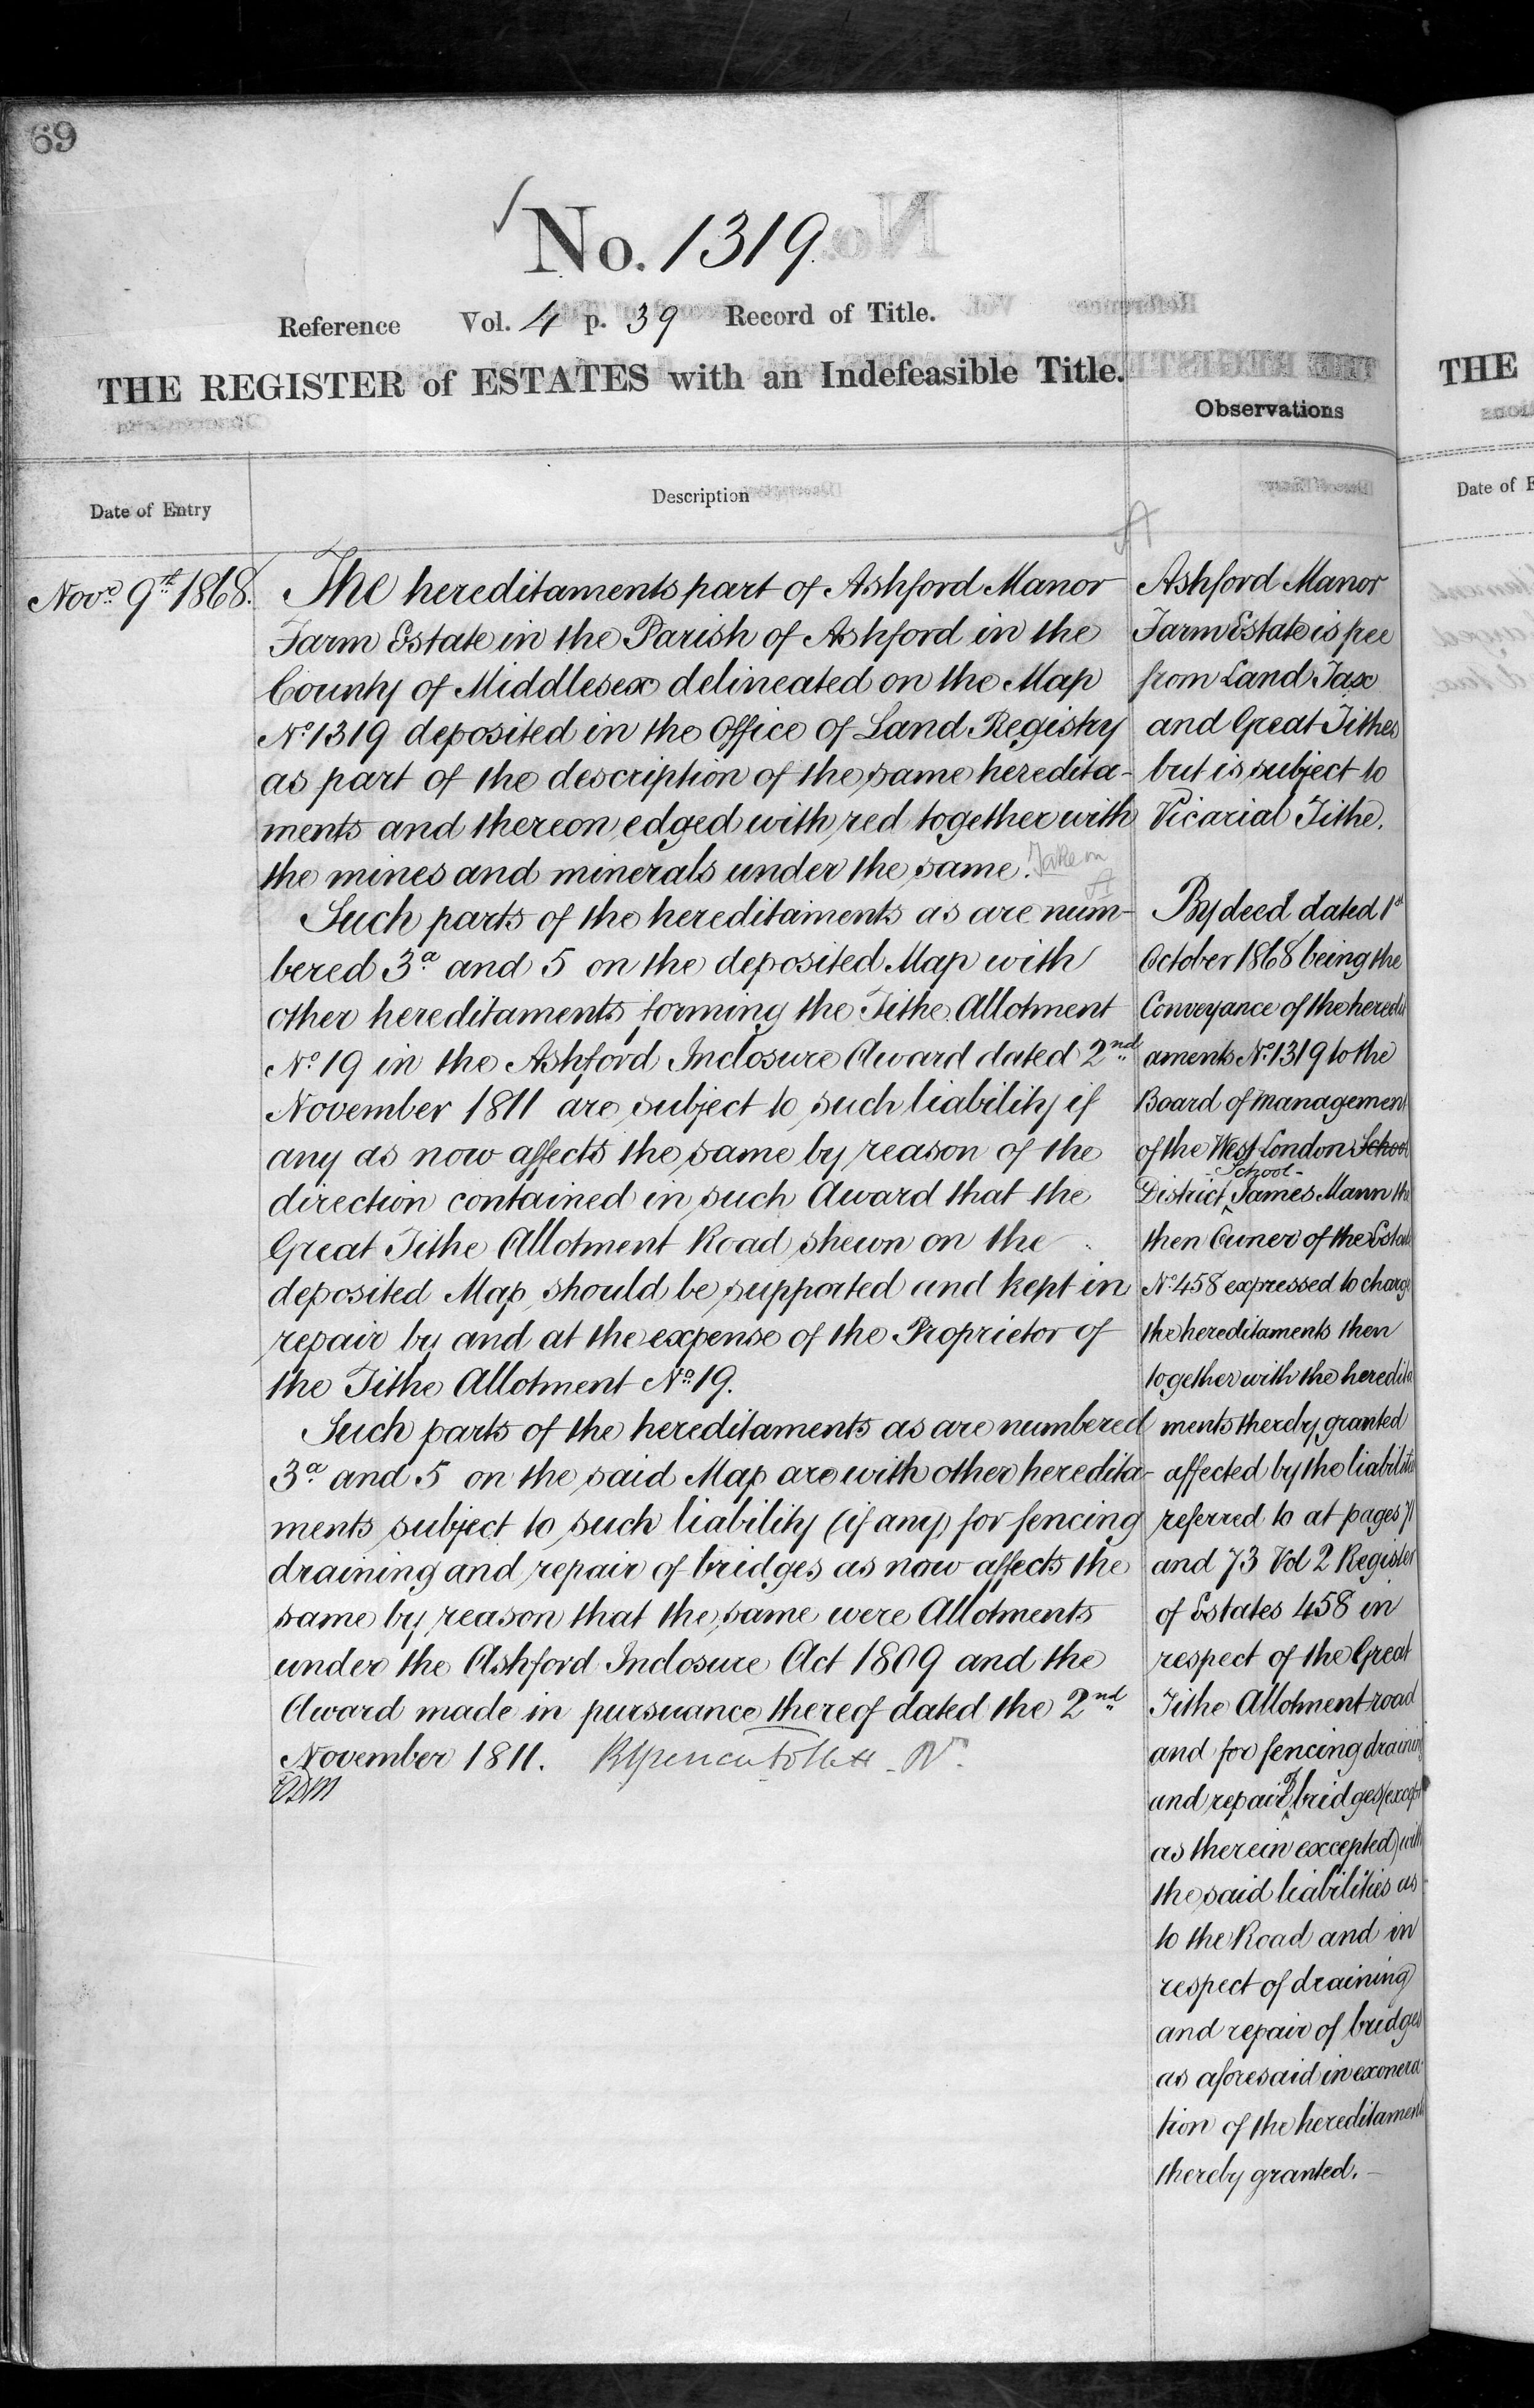 69
No. 1319.
Reference Vol. 4 p. 39 Record of Title.
THE REGISTER of ESTATES with an Indefeasible Title.
Observations
Date of Entry
Description
Novr. 9th 1868.
The hereditaments part of Ashford Manor
Farm Estate in the Parish of Ashford in the
County of Middlesex delineated on the Map
No. 1319 deposited in the Office of Land Registry
as part of the description of the same heredita-
ments and thereon edged with red together with
the mines and minerals under the same. Take in
A
Such parts of the hereditaments as are num-
bered 3a and 5 on the deposited Map with
other hereditaments forming the Tithe Allotment
No. 19 in the Ashford Inclosure Award dated 2nd
November 1811 are subject to such liability if
any as now affects the same by reason of the
direction contained in such Award that the
Great Tithe Allotment Road shewn on the
deposited Map should be supported and kept in
repair by and at the expense of the Proprietor of
the Tithe Allotment No. 19.
Such parts of the hereditaments as are numbered
3a and 5 on the said Map are with other heredita-
ments subject to such liability (if any) for fencing
draining and repair of bridges as now affects the
same by reason that the same were Allotments
under the Ashford Inclosure Act 1809 and the
Award made in pursuance thereof dated the 2nd
November 1811.
A
Ashford Manor
Farm Estate is free
from Land Tax
and Great Tithes
but is subject to
Vicarial Tithe.
By deed dated 1st
October 1868 being the
Conveyance of the heredit
aments No. 1319 to the
Board of Management
of the West London School
School
District James Mann the
then Owner of the Estate
No. 458 expressed to charge
the hereditaments then
together with the heredita
ments thereby granted
affected by the liabilities
referred to at pages 71
and 73 Vol 2 Register
of Estates 458 in
respect of the Great
Tithe Allotment road
and for fencing draining
and repair of bridges (except
as therein excepted) with
the said liabilities as
to the Road and in
respect of draining
and repair of bridges
as aforesaid in exonera-
tion of the hereditaments
thereby granted.
THE
Date of E